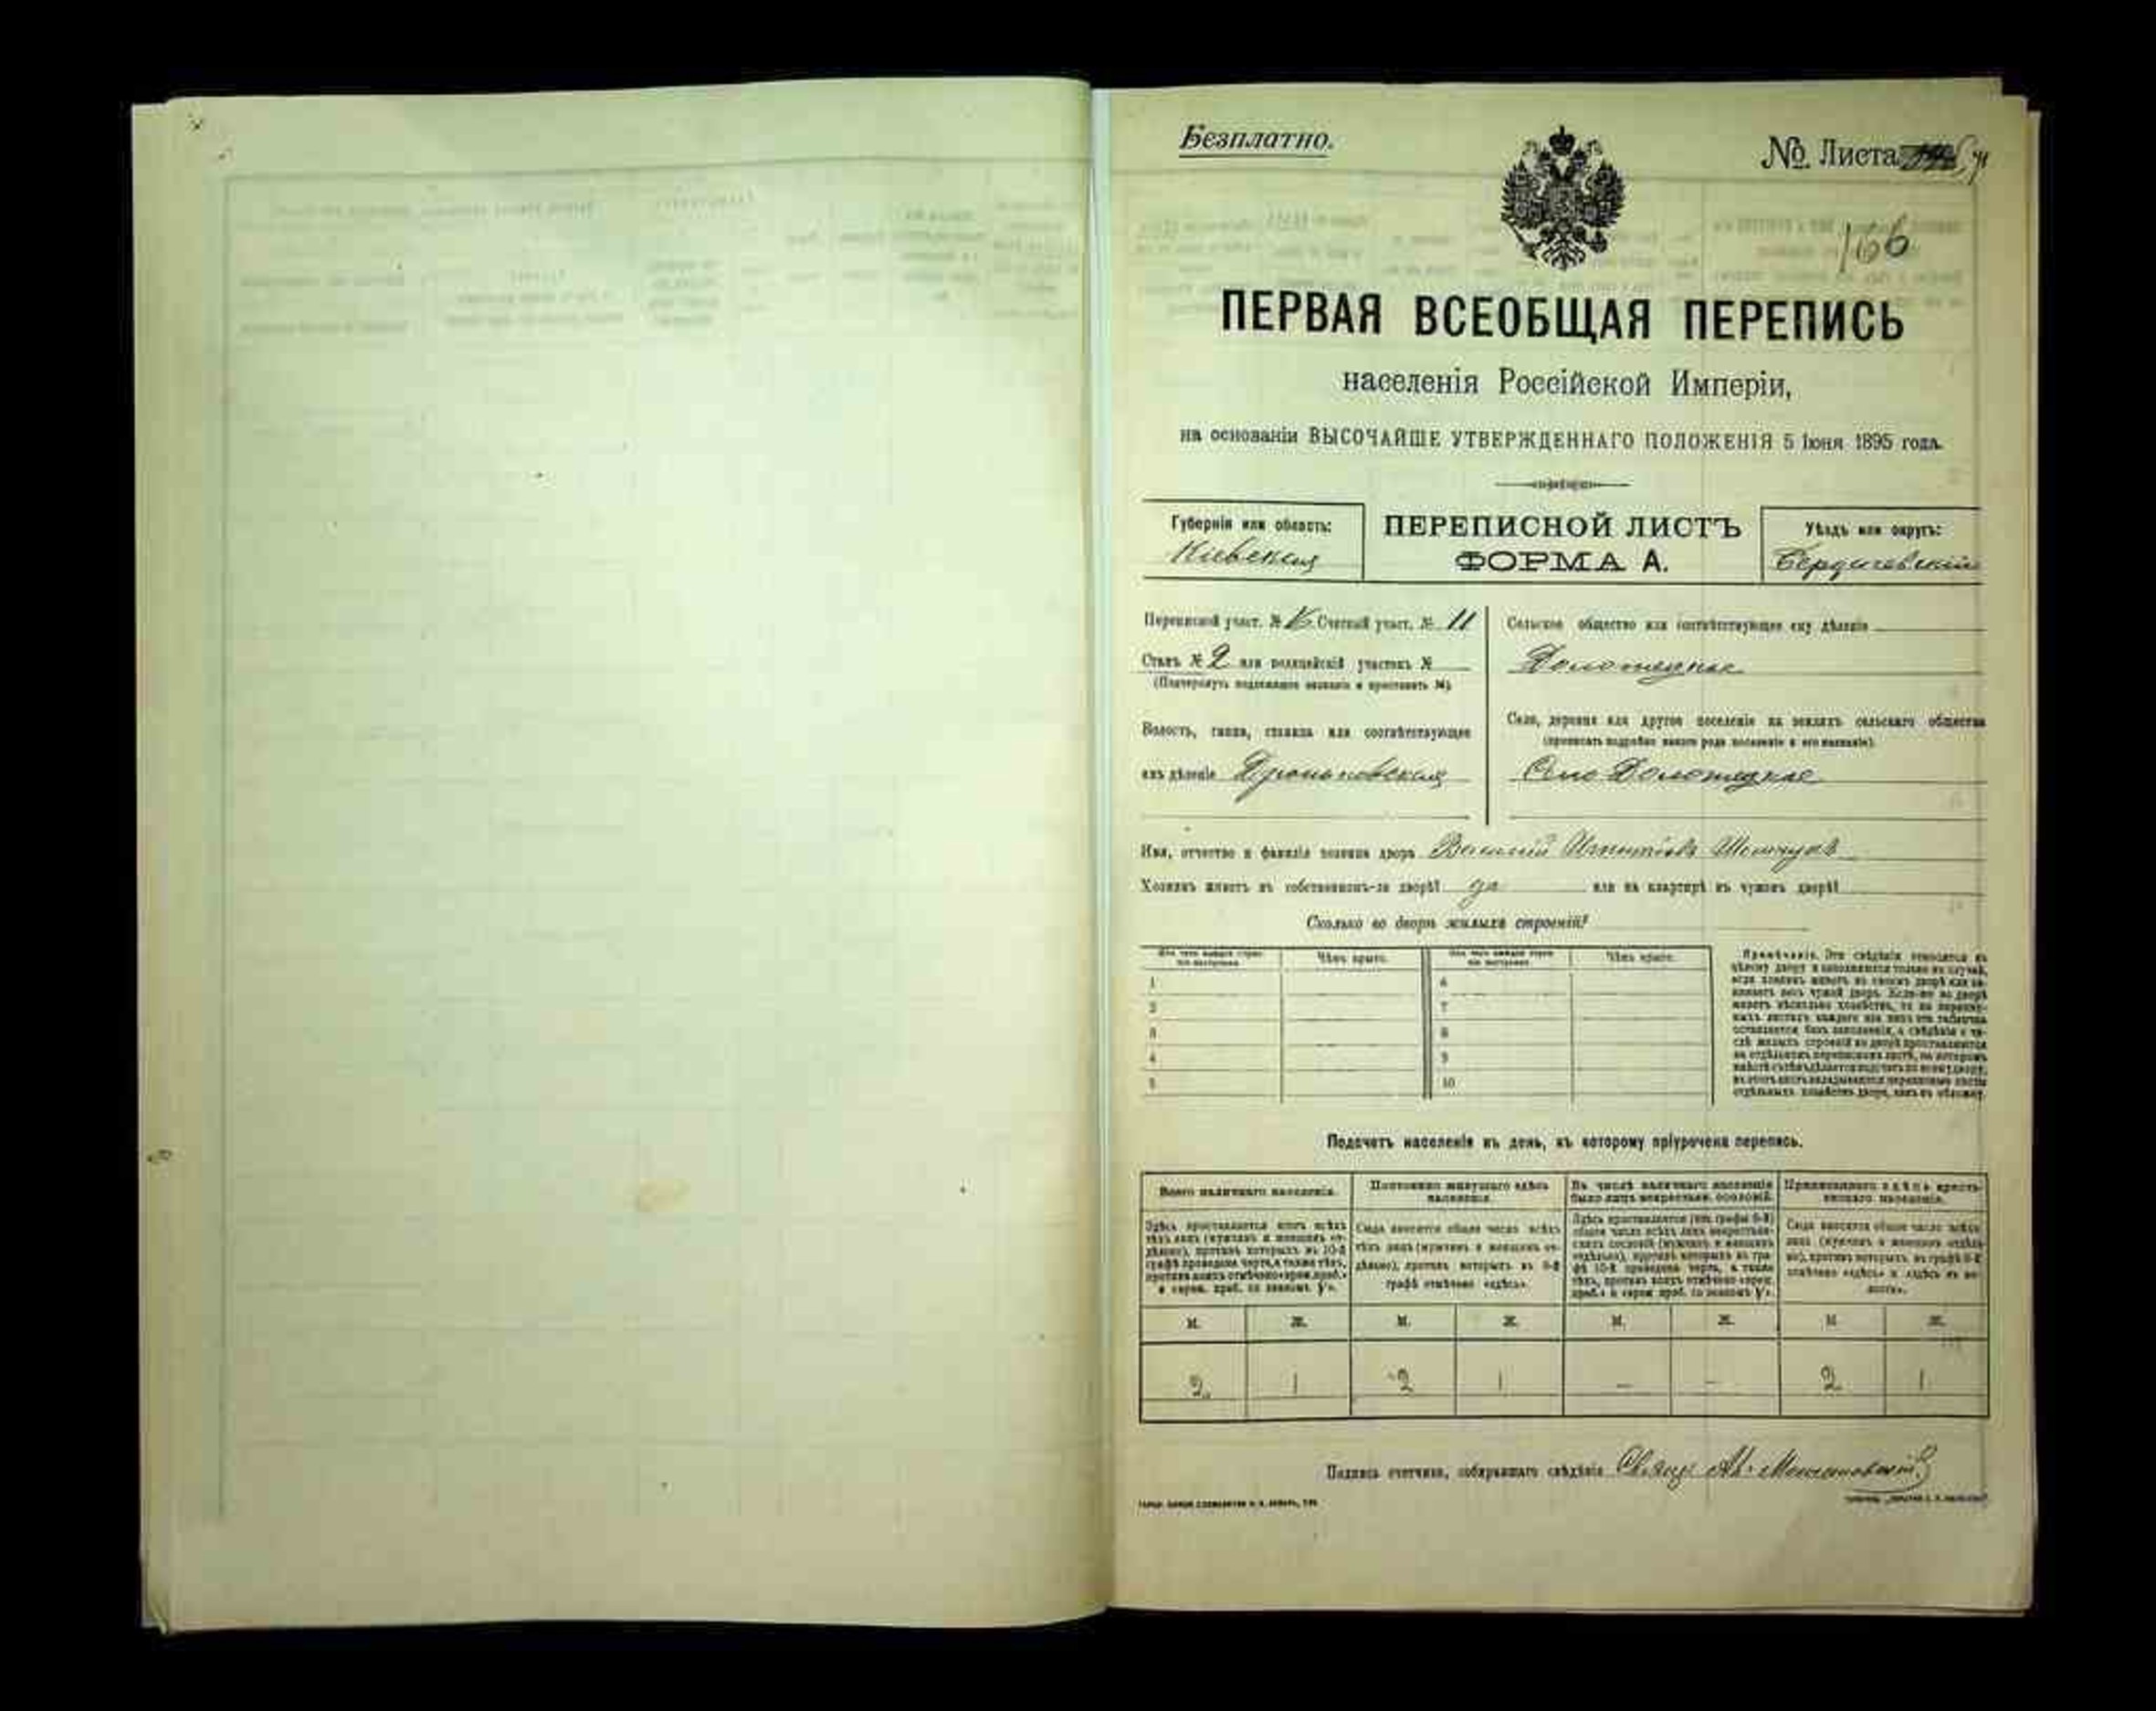 Безплатно.
№ Листа
166
ПЕРВАЯ ВСЕОБЩАЯ ПЕРЕПИСЬ
населенія Россійской Имперіи,
на основаніи ВЫСОЧАЙШЕ УТВЕРЖДЕННАГО ПОЛОЖЕНІЯ 5 Іюня 1895 года.
Губернія или область:
Кіевская
ПЕРЕПИСНОЙ ЛИСТЪ
ФОРМА А.
Уѣздъ или округъ:
Бердичевскій
Переписной участ. № Счетный участ. № 11
Станъ № 2 или полицейскій участокъ №
(Подчеркнуть подлежащее названіе и проставить №).
Волость, гмина, станица или соотвѣтствующее
имъ дѣленіе
Сельское общество или соотвѣтствующее ему дѣленіе
Село, деревня или другое поселеніе на земляхъ сельскаго общества
(прописать подробно какого рода поселеніе и его названіе).
Село
Имя, отчество и фамилія хозяина двора Василій
Хозяинъ живетъ въ собственномъ-ли дворѣ? да или на квартирѣ въ чужомъ дворѣ?
Сколько во дворѣ жилыхъ строеній?
Изъ чего каждое строеніе построено.
Чѣмъ крыто.
Изъ чего каждое строеніе построено.
Чѣмъ крыто.
1 6
2 7
3 8
4 9
5 10
Примѣчаніе. Эти свѣдѣнія относятся къ
цѣлому двору и заполняются только въ случаѣ,
если хозяинъ живетъ въ своемъ дворѣ или за-
нимаетъ весь чужой дворъ. Если-же во дворѣ
живетъ нѣсколько хозяйствъ, то на перепис-
ныхъ листахъ каждаго изъ нихъ эта табличка
оставляется безъ заполненія, а свѣдѣнія о чи-
слѣ жилыхъ строеній во дворѣ проставляются
на отдѣльномъ переписномъ листѣ, на которомъ
Подсчетъ населенія въ день, къ которому пріурочена перепись.
Всего наличнаго населенія.
Постоянно живущаго здѣсь
населенія.
Въ числѣ наличнаго населенія
было лицъ некрестьян. сословій.
Приписаннаго здѣсь кресть-
янскаго населенія.
Здѣсь проставляется итогъ всѣхъ
тѣхъ лицъ (мужчинъ и женщинъ от-
дѣльно), противъ которыхъ въ 10-й
графѣ проведена черта, а также тѣхъ,
противъ коихъ отмѣчено «врем. проб.»
Сюда вносится общее число всѣхъ
тѣхъ лицъ (мужчинъ и женщинъ от-
дѣльно), противъ которыхъ въ 9-й
графѣ отмѣчено «здѣсь».
Здѣсь проставляется (изъ графы 6-й)
общее число всѣхъ лицъ некрестьян-
скихъ сословій (мужчинъ и женщинъ
отдѣльно), противъ которыхъ въ гра-
фѣ 10-й проведена черта, а также
тѣхъ, противъ коихъ отмѣчено «врем.
Сюда вносится общее число всѣхъ
лицъ (мужчинъ и женщинъ отдѣль-
но), противъ которыхъ въ графѣ 8-й
отмѣчено «здѣсь» и «здѣсь въ во-
лости».
М. Ж. М. Ж. М. Ж. М. Ж.
2 1 2 1 — — 2 1
Подпись счетчика, собиравшаго свѣдѣнія